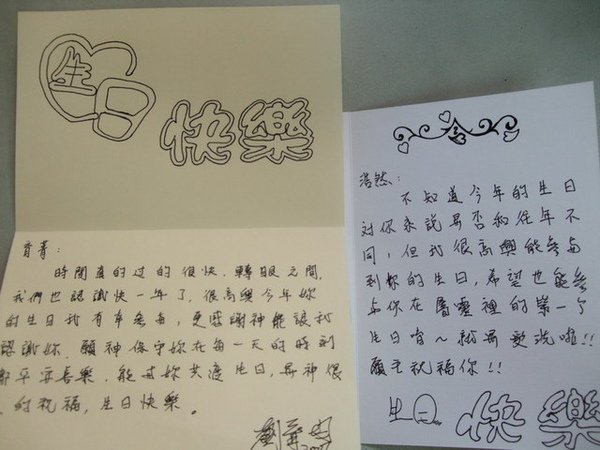 生日
快樂
菁：
時間真的过的很快，轉眼之間，
我們也認識快一年了，很高興今年妳
的生日我有幸参與，更感謝神能讓我
認識妳．願神保守妳在每一天的時刻
都平安喜樂，能與妳共渡生日，是神很
的祝福，生日快樂．
浩然：
不知道今年的生日
對你來說是否和往年不
同，但我很高興能參與
到妳的生日，希望也能參
与你在屬靈裡的第一个
生日唷～就是受洗啦！！
願主祝福你！！
生日 快樂